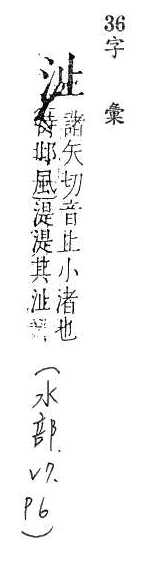 36字彙
沚
諸矢切音止小渚也
詩邶風湜湜其沚
(水部.V7.P6)